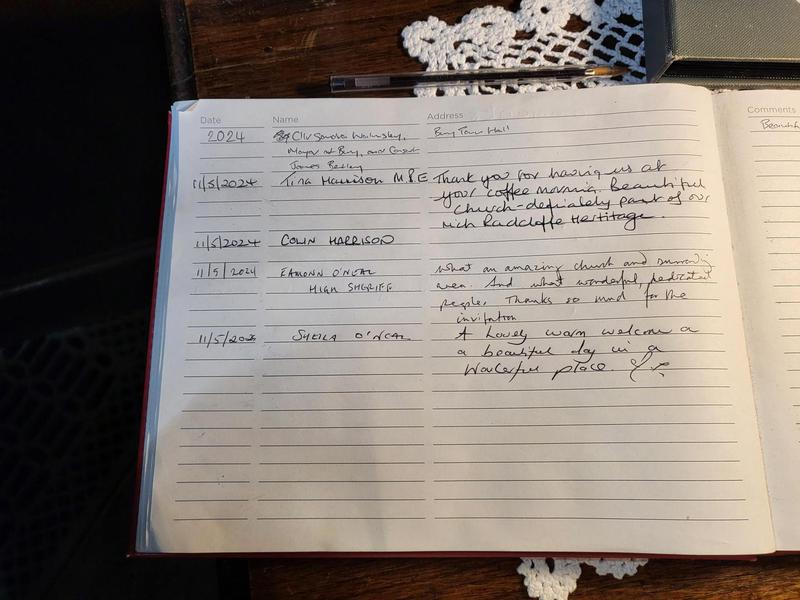 Date Name Address Comments
2024 Cllr Sandra Walmsley, Bury Town Hall
Mayor of Bury, and Consort
James
11/5/2024 Tina Harrison MBE Thank you for having us at
your coffee morning. Beautiful
Church - definately part of our
rich Radcliffe Hertitage.
11/5/2024 COLIN HARRISON
11/5/2024 EAMONN O'NEAL What an amazing church and
HIGH SHERIFF area. And what wonderful, dedicated
people. Thanks so much for the
invitation
11/5/2025 SHEILA O'NEAL A lovely warm welcome a
a beautiful day in a
wonderful place.